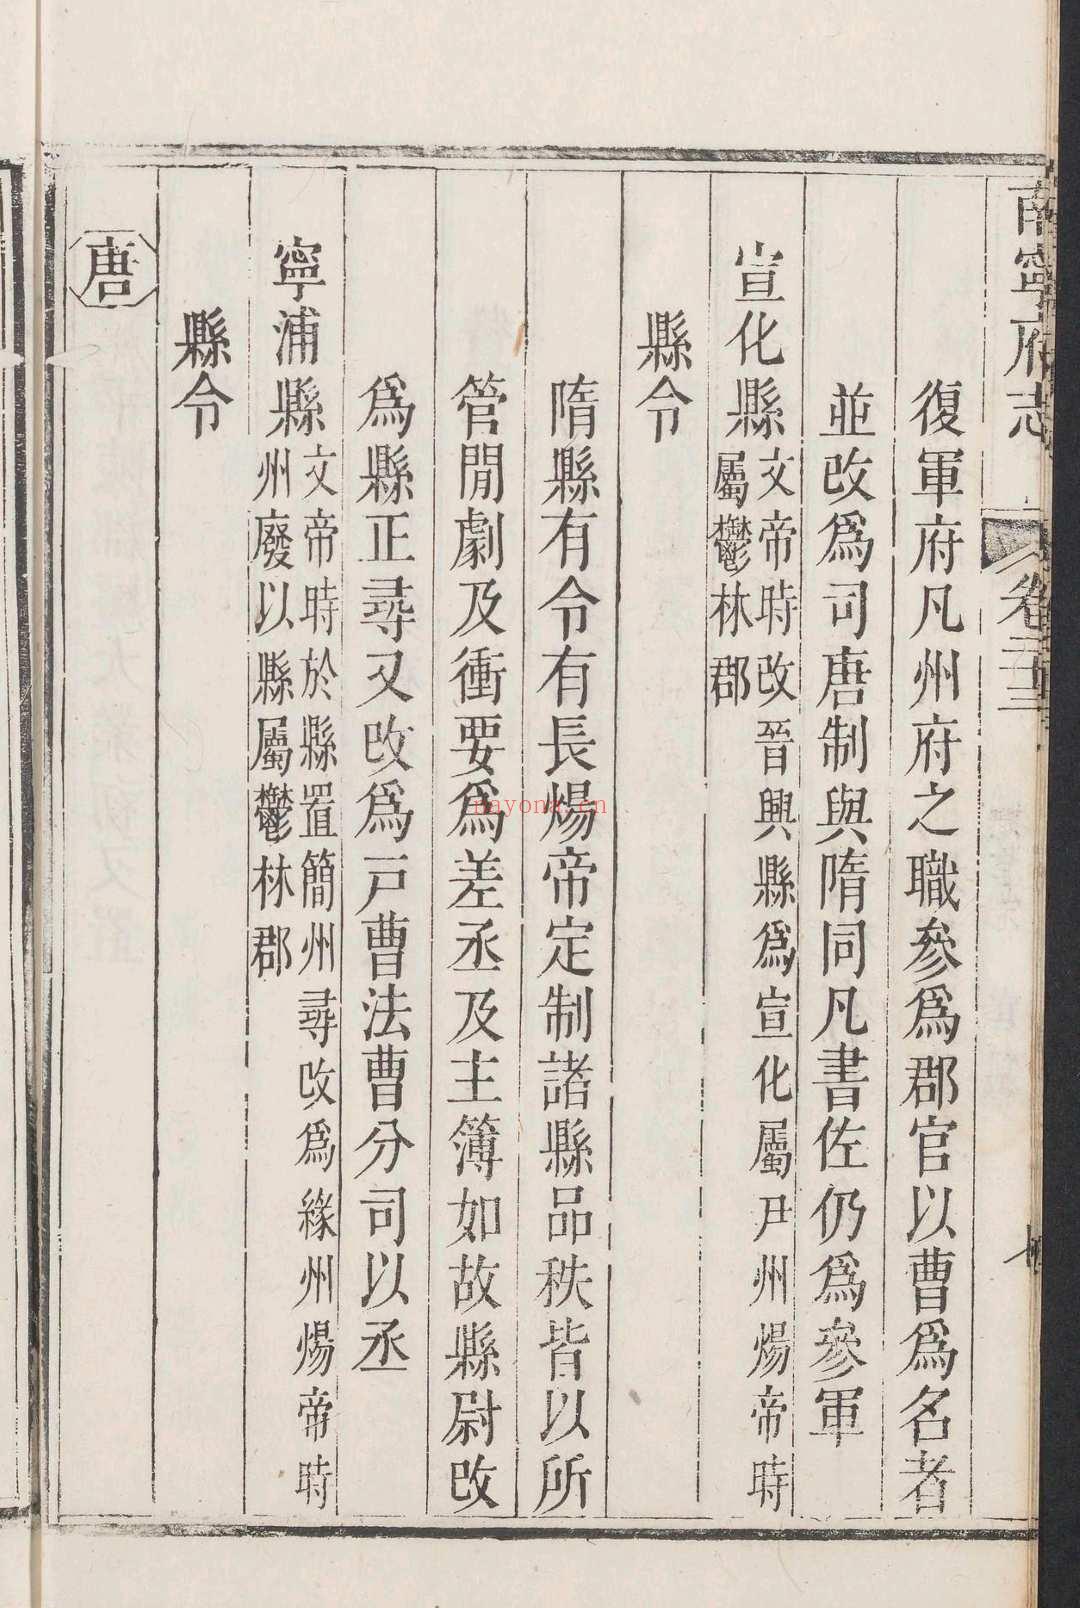 南寧府志
卷二十三
七
復軍府凡州府之職參爲郡官以曹爲名者
並改爲司唐制與隋同凡書佐仍爲參軍
宣化縣文帝時改晉興縣爲宣化屬尹州煬帝時
屬鬱林郡
縣令
隋縣有令有長煬帝定制諸縣品秩皆以所
管閒劇及衝要爲差丞及主簿如故縣尉改
爲縣正尋又改爲戸曹法曹分司以丞
寧浦縣文帝時於縣置簡州尋改爲緣州煬帝時
州廢以縣屬鬱林郡
縣令
唐
nayona.cn